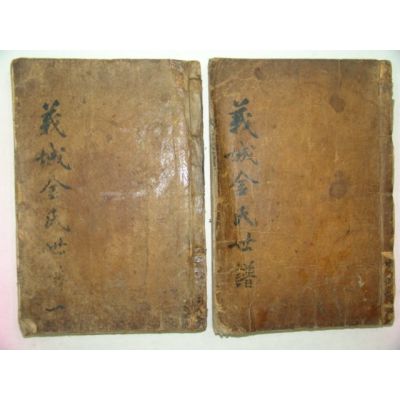 義城金氏世譜
義城金氏世 一